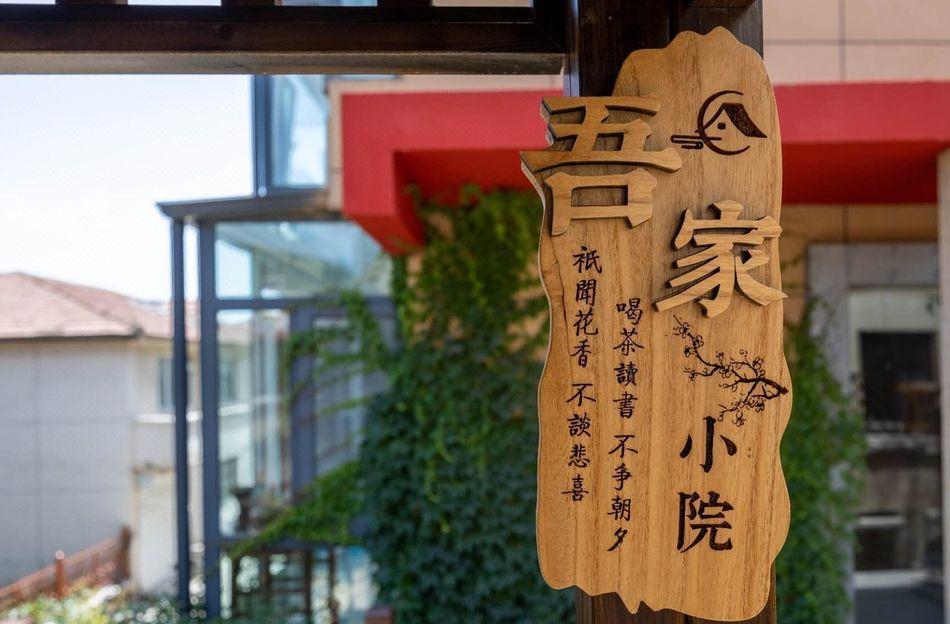 吾家
小院
喝茶讀書 不争朝夕
祇聞花香 不談悲喜